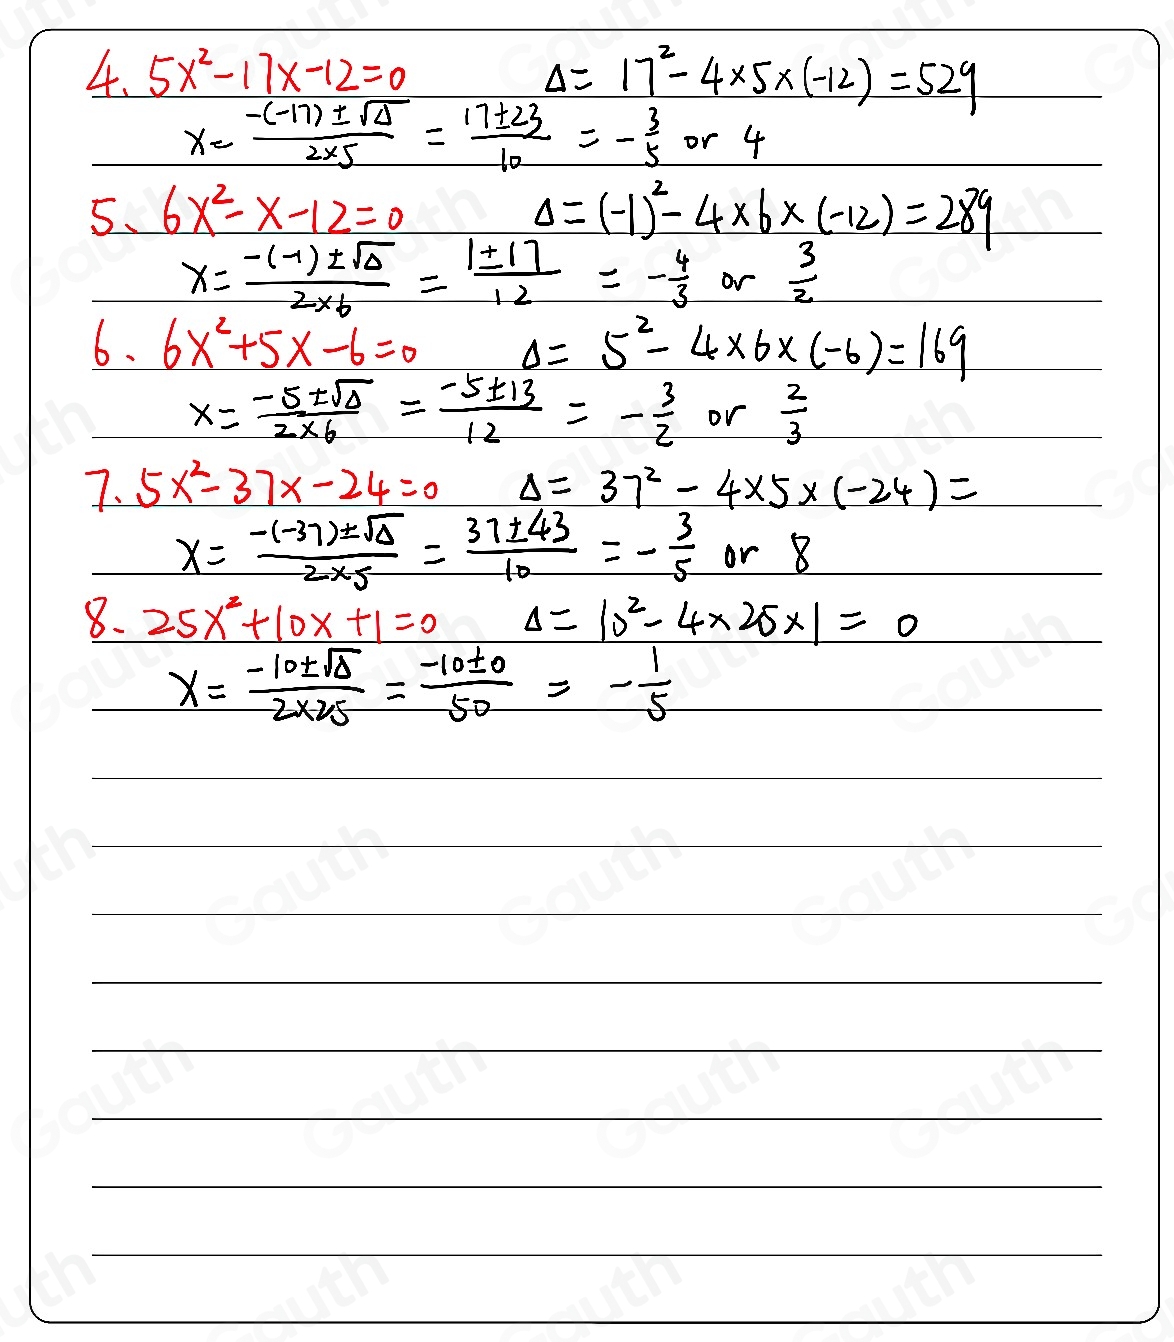 4. 5x²-17x-12=0 Δ= 17²-4×5×(-12)=529
x= (-(-17)±√Δ)/(2×5) = (17±23)/10 = -3/5 or 4
5、6x²-x-12=0 Δ=(-1)²-4×6×(-12)=289
x= (-(-1)±√Δ)/(2×6) = (1±17)/12 = -4/3 or 3/2
6、6x²+5x-6=0 Δ= 5²-4×6×(-6)=169
x= (-5±√Δ)/(2×6) = (-5±13)/12 = -3/2 or 2/3
7. 5x²-37x-24=0 Δ= 37²-4×5×(-24)=
x= (-(-37)±√Δ)/(2×5) = (37±43)/10 = -3/5 or 8
8. 25x²+10x+1=0 Δ= 10²-4×25×1= 0
x= (-10±√Δ)/(2×25) = (-10±0)/50 = -1/5